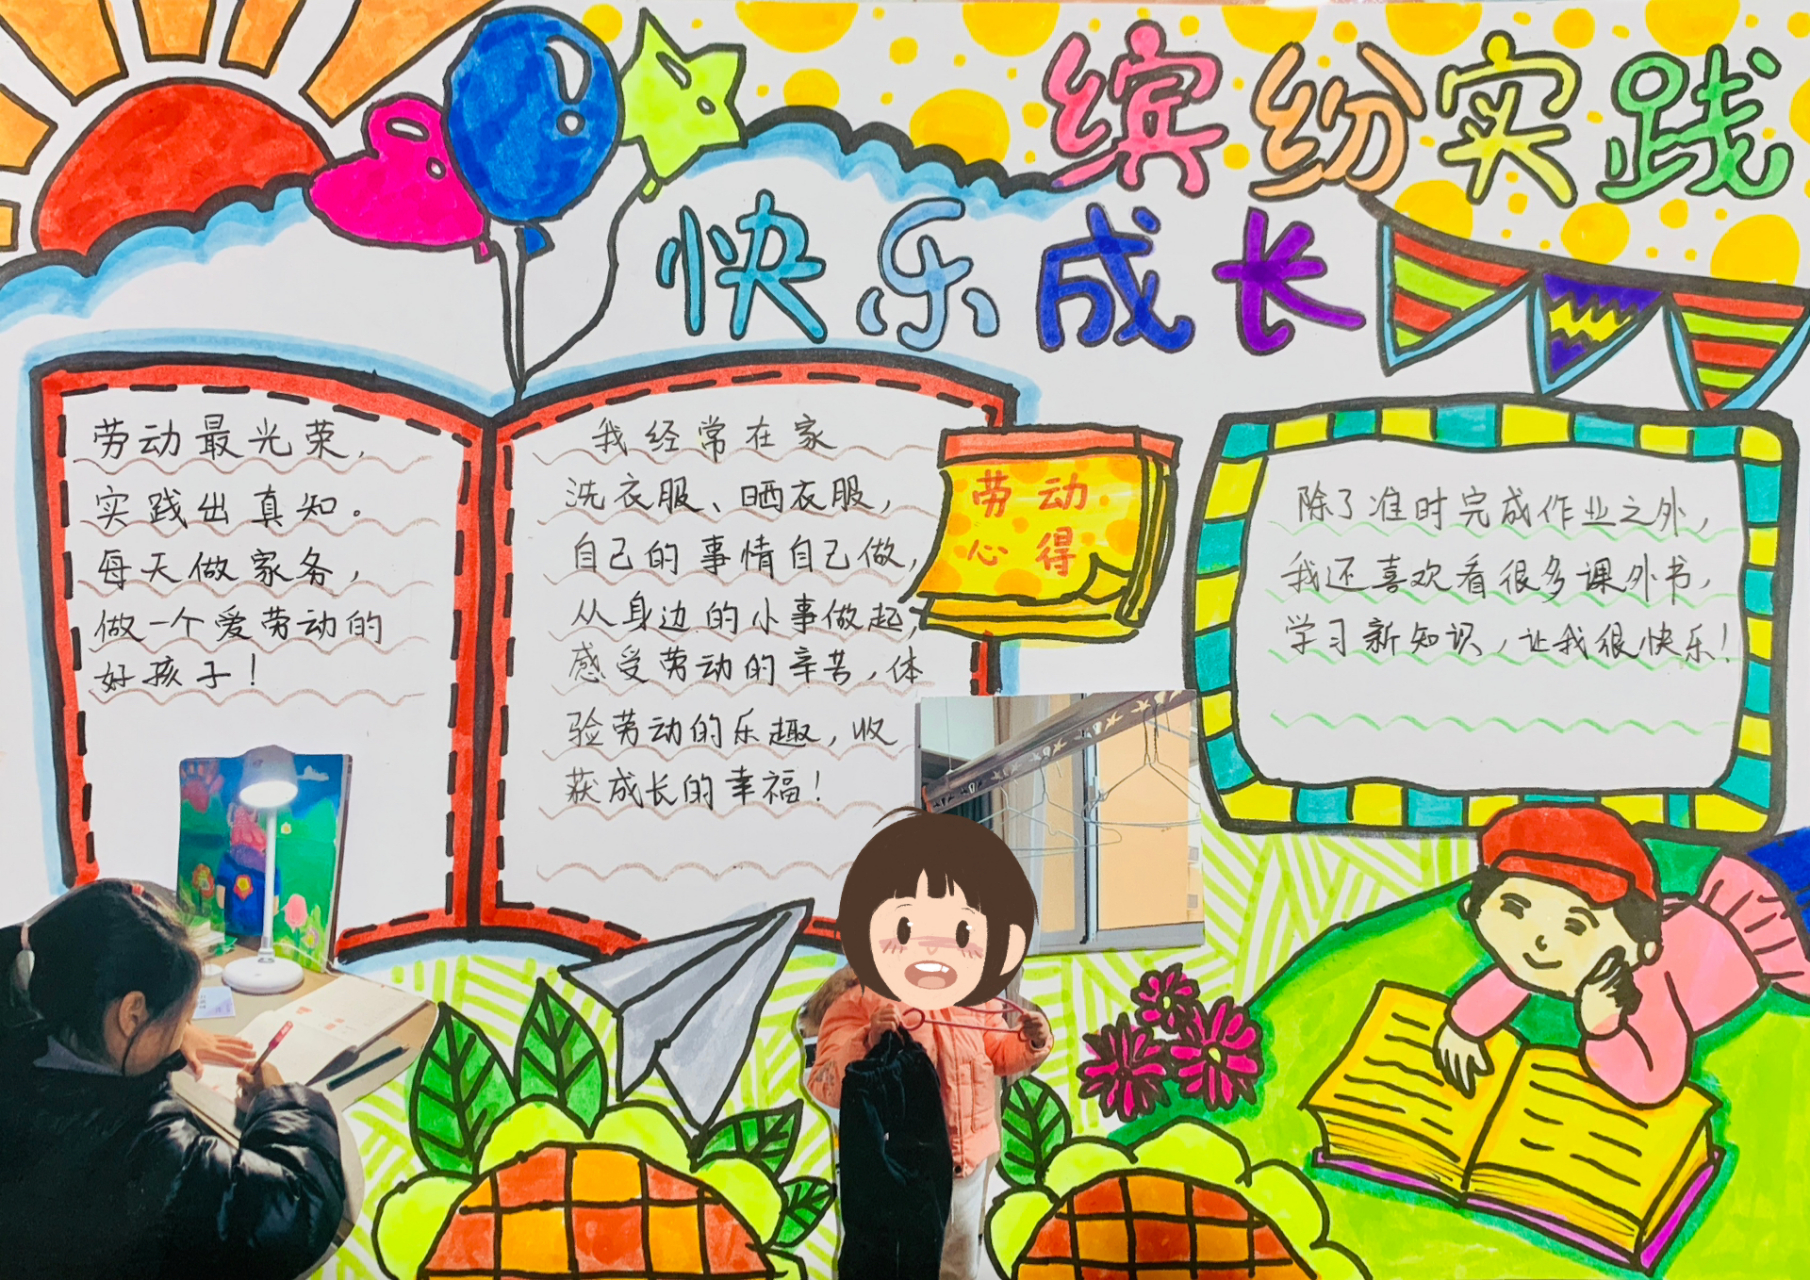 缤纷实践
快乐成长
劳动最光荣，
实践出真知。
每天做家务，
做一个爱劳动的
好孩子！
我经常在家
洗衣服、晒衣服，
自己的事情自己做，
从身边的小事做起，
感受劳动的辛苦，体
验劳动的乐趣，收
获成长的幸福！
劳动
心得
除了准时完成作业之外，
我还喜欢看很多课外书，
学习新知识，让我很快乐！